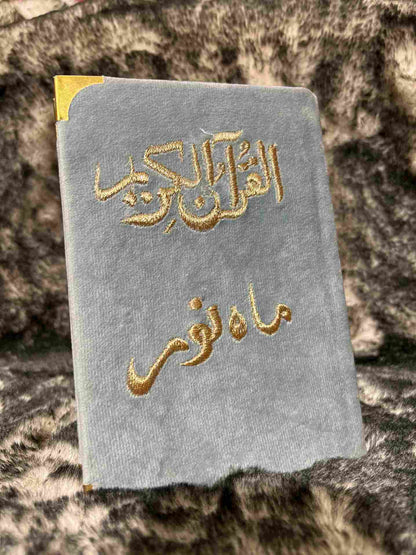 القرآن الكريم
ماه نور